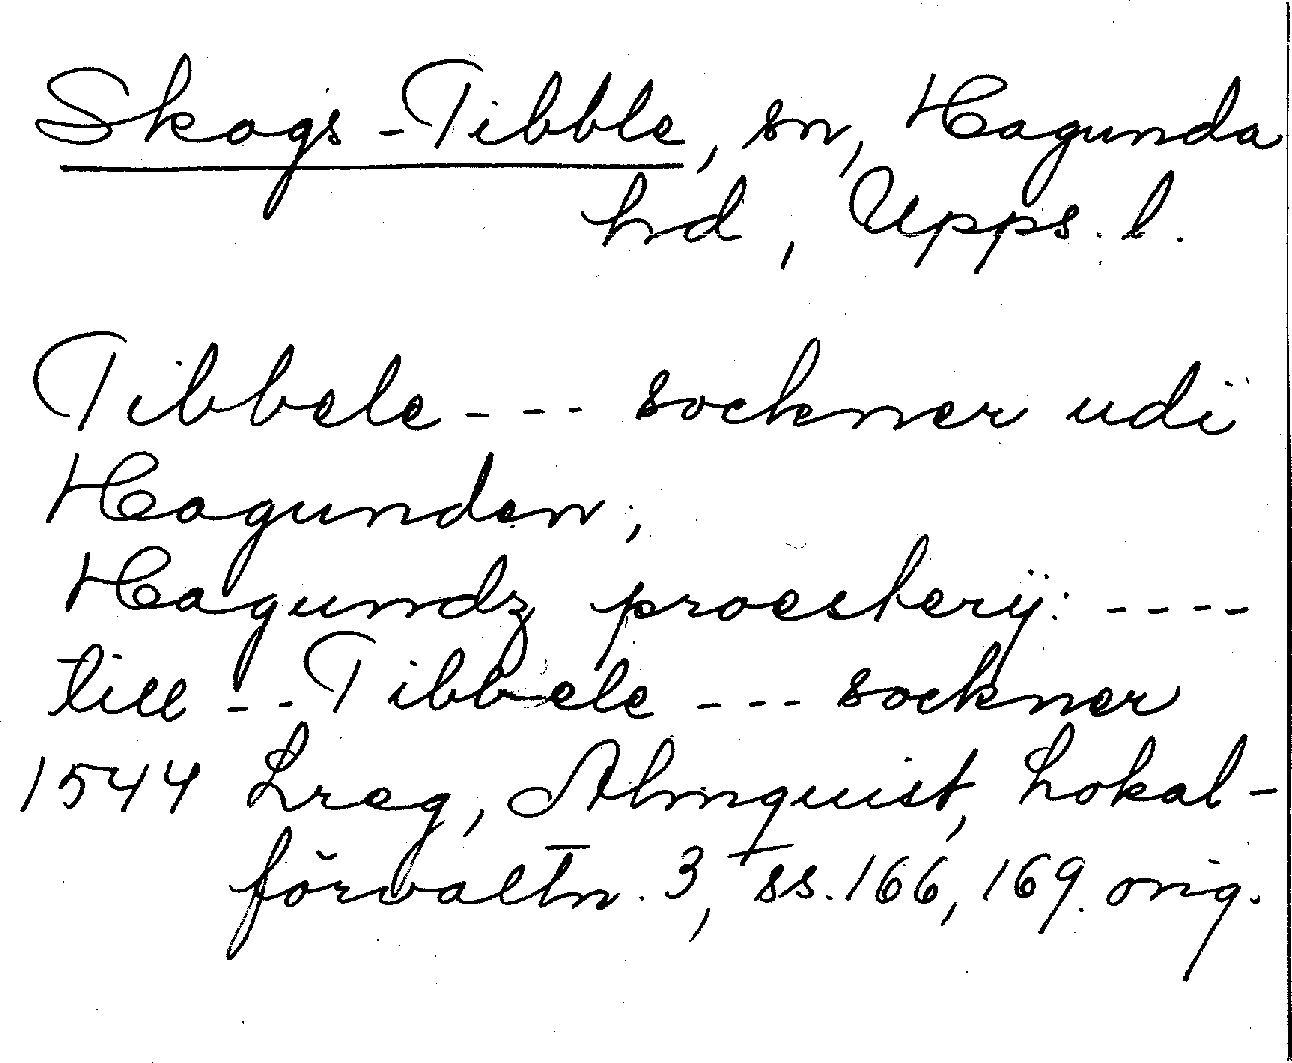 Skogs-Tibble, sn, Hagunda
hd, Upps. l.
Tibbele --- sockner udi
Hagunden;
Hagundz proesterÿ: ----
till -- Tibbele --- sockner
1544 Lreg, Almquist, Lokal-
förvaltn. 3, ss. 166, 169. orig.